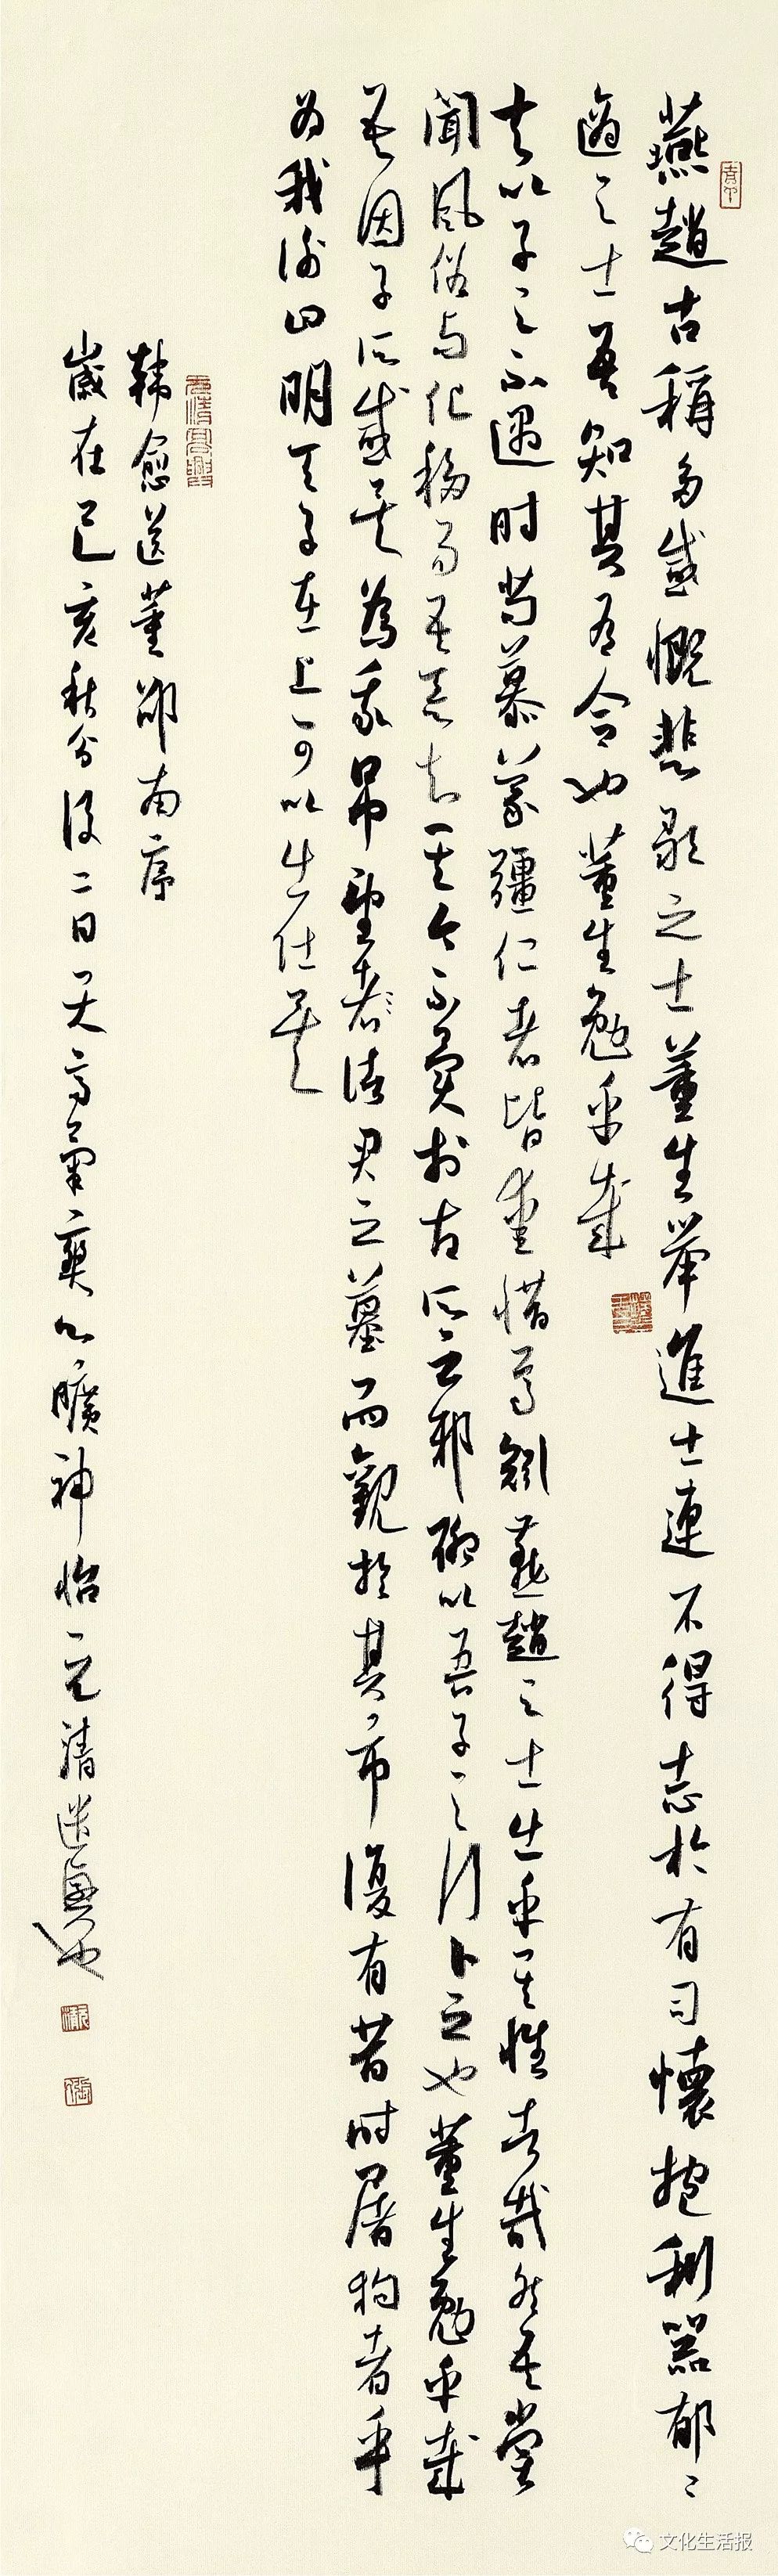 燕趙古稱多感慨悲歌之士董生舉進士連不得志於有司懷抱利器郁〻
適之士吾知其有合也董生勉乎哉
夫以子之不遇时苟慕義彊仁者皆愛惜焉矧燕趙之士出乎其性者哉然吾嘗
聞風俗与化移易吾惡知其今不異於古所云邪聊以吾子之行卜之也董生勉乎哉
吾因子所感矣為我吊望者諸君之墓而觀於其市復有昔时屠狗者乎
为我謝曰明天子在上可以出仕矣
韓愈送董邵南序
歲在己亥秋分後二日天高氣爽心曠神怡元清遣興也
文化生活报